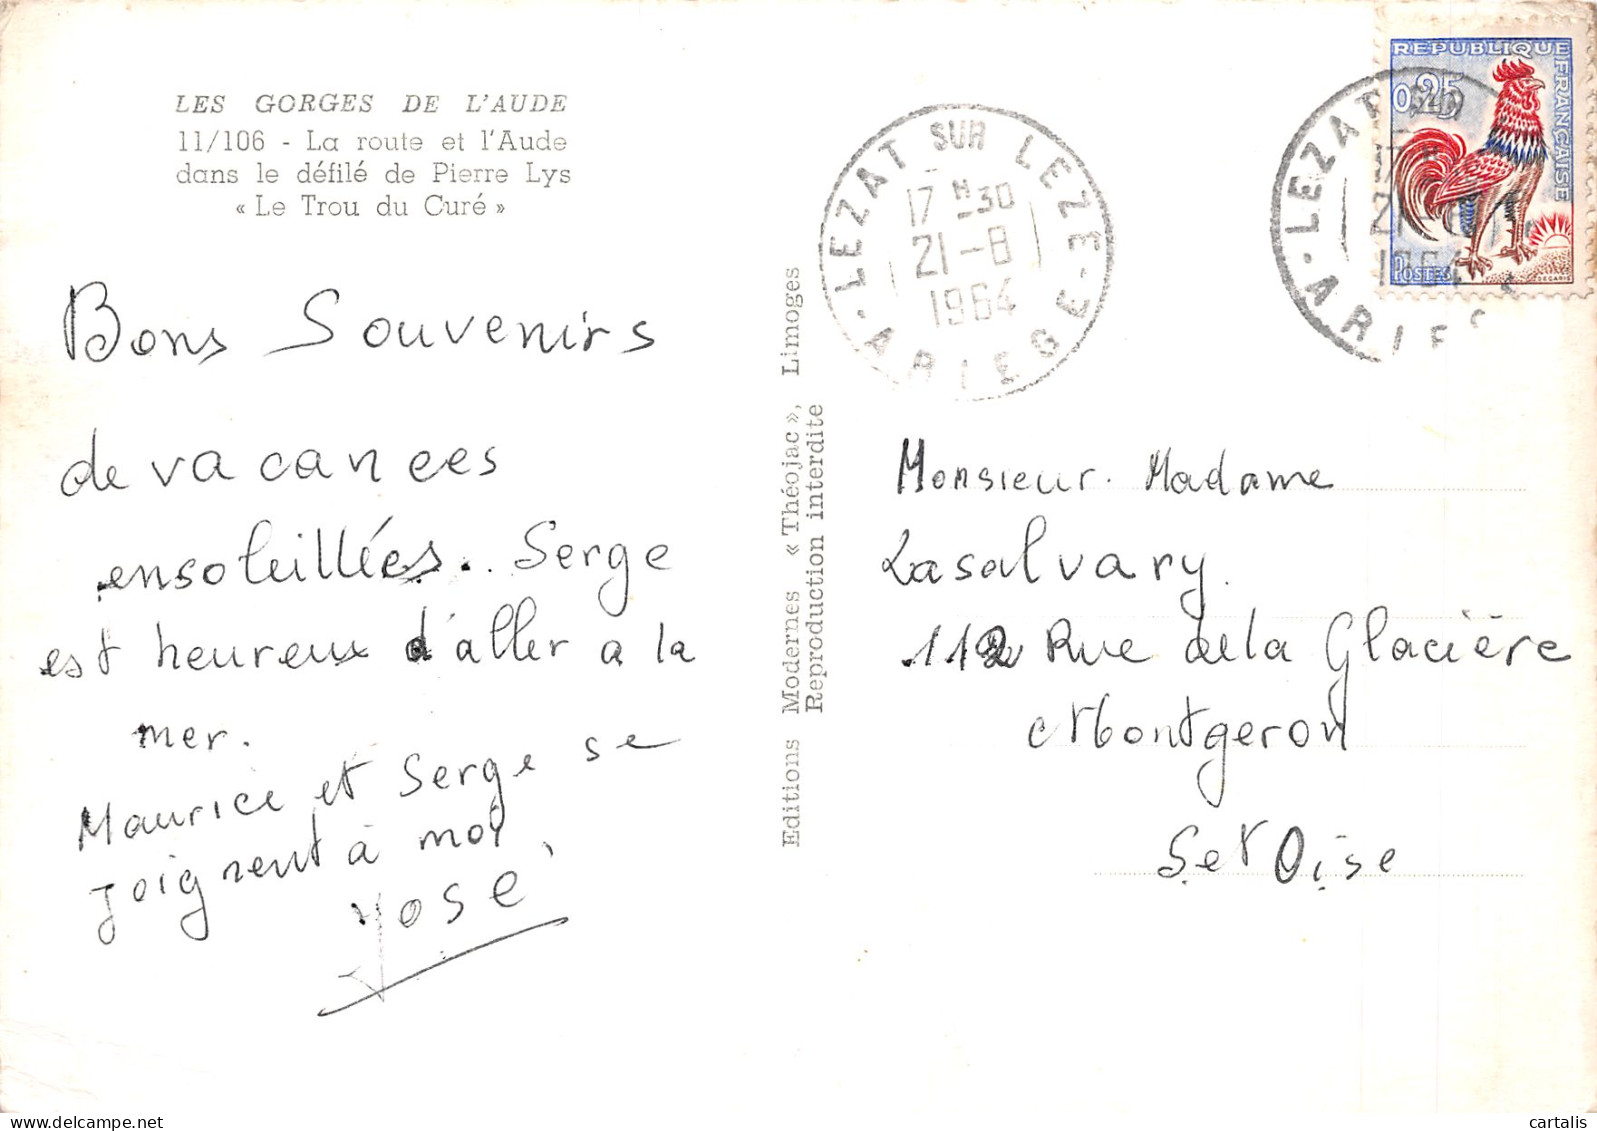 LES GORGES DE L'AUDE
11/106 - La route et l'Aude
dans le défilé de Pierre Lys
« Le Trou du Curé »
Bons Souvenirs
de vacances
ensoleillées.. Serge
est heureux d'aller a la
mer.
Maurice et Serge se
joignent à moi,
José
Editions Modernes « Théojac », Limoges
Reproduction interdite
LEZAT SUR LEZE - ARIEGE -
17 H 30
21-8
1964
REPUBLIQUE FRANÇAISE
0,25
POSTES
DECARIS
LEZAT
21-8
1964
ARIEGE
Monsieur. Madame
Lasalvary.
112 Rue de la Glacière
Montgeron
S et Oise
cartalis
delcampe.net